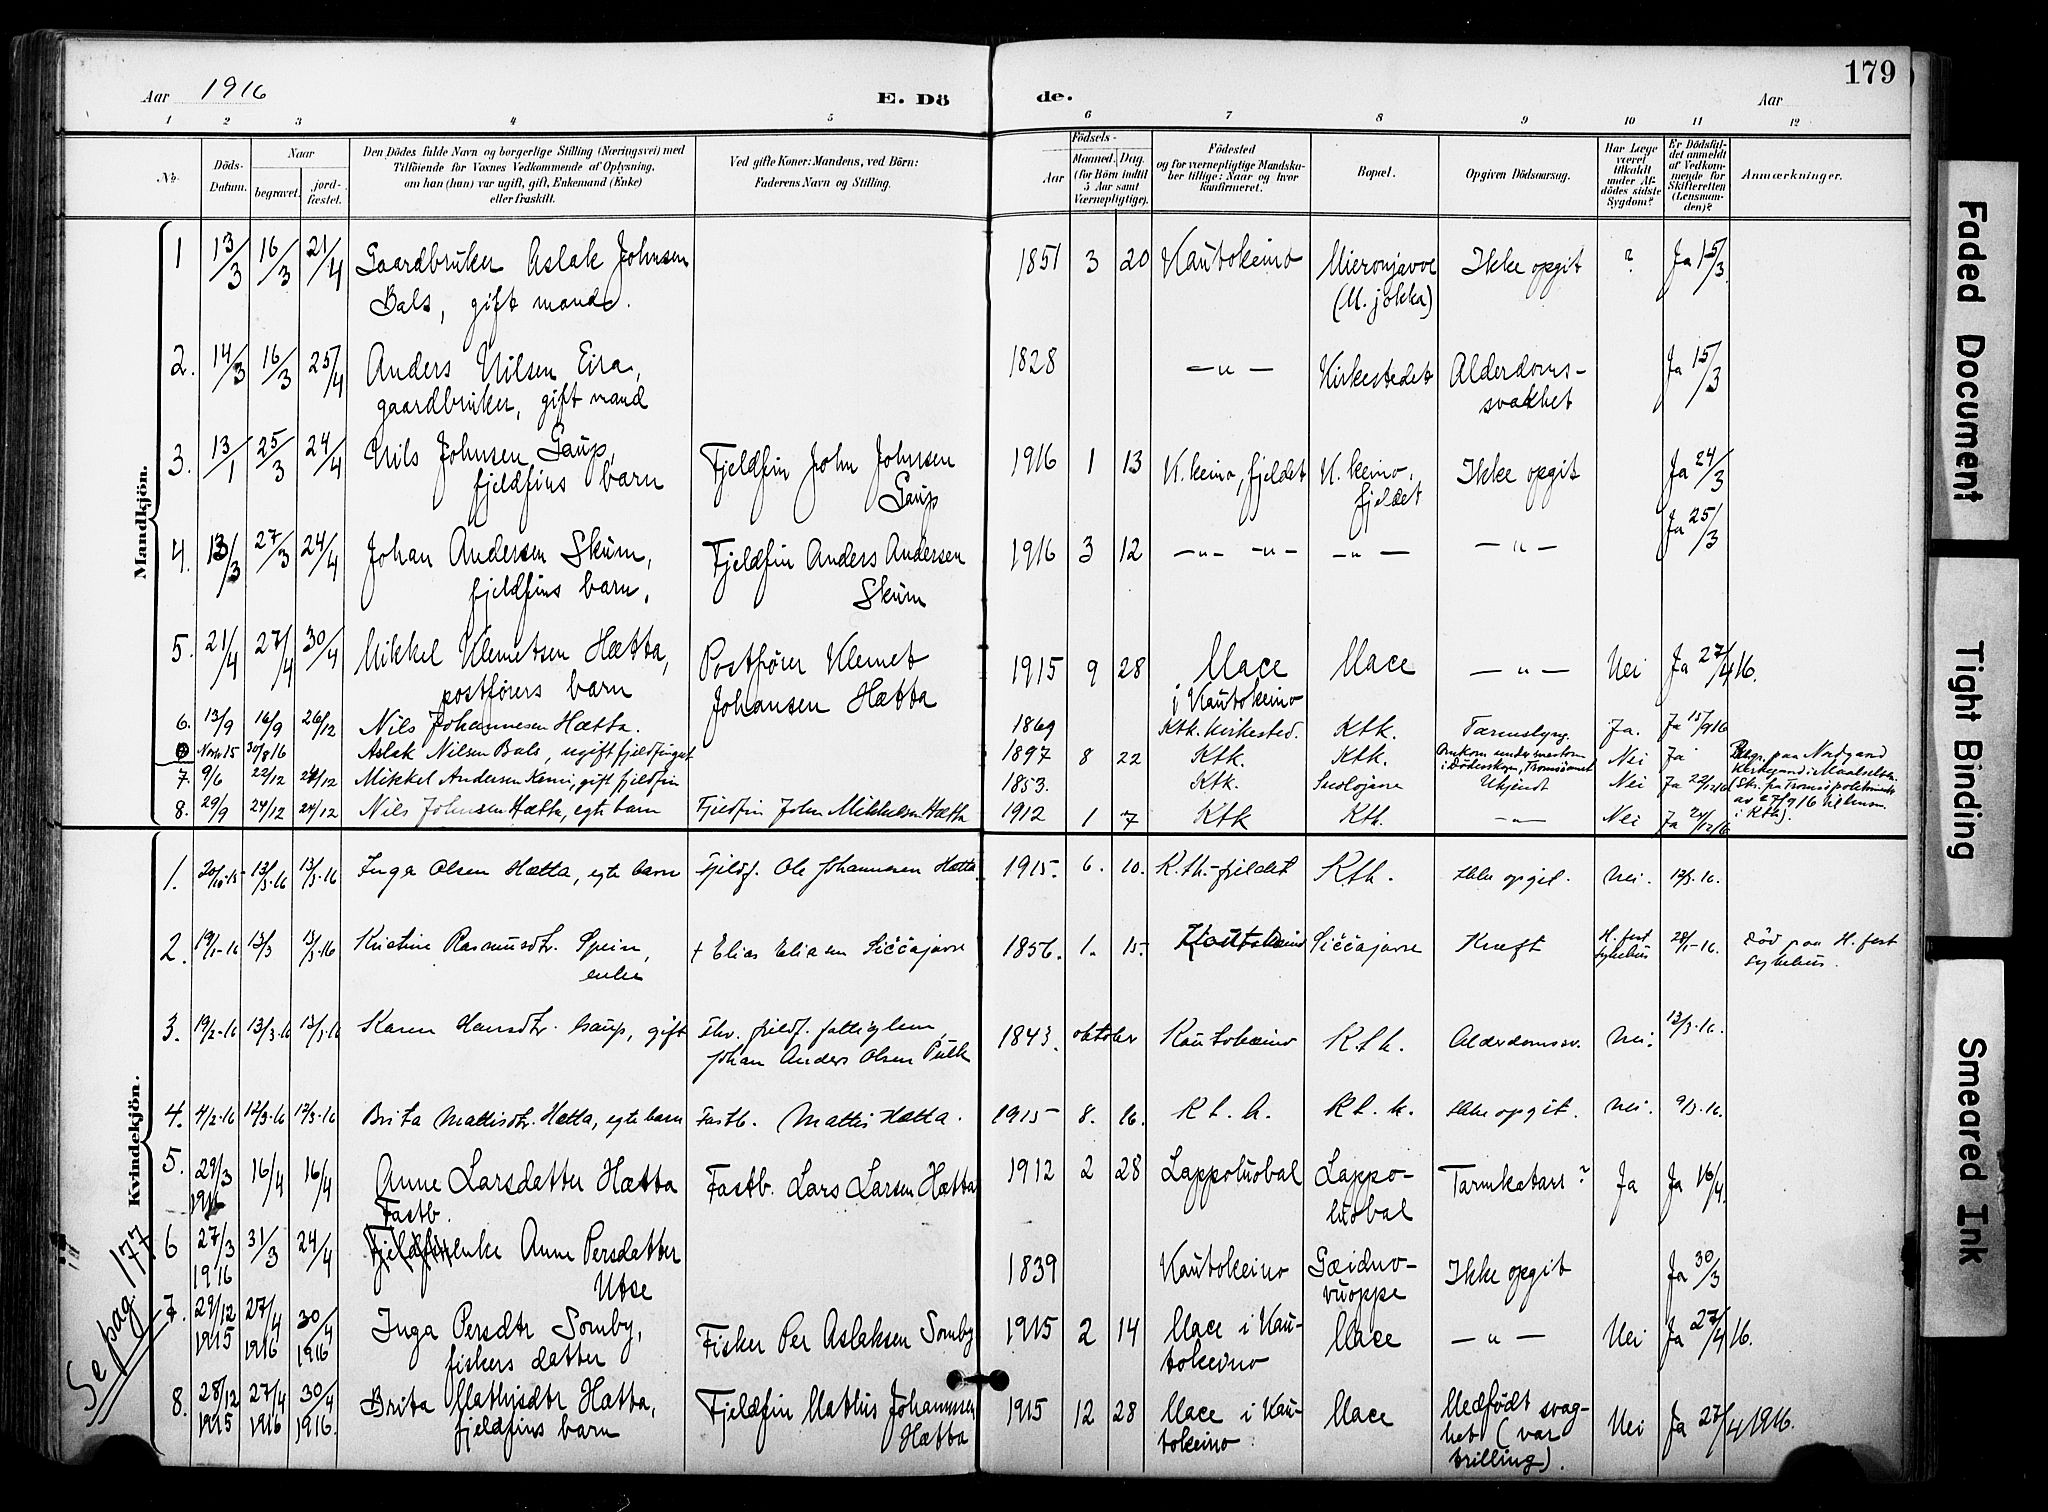 179
Aar 1916
E. Dö
de.
Aar
1 2 3 4 5 6 7 8 9 10 11 12
No.
Döds-Datum.
Naar
begravet.
jord-fæstet.
Den Dödes fulde Navn og borgerlige Stilling (Næringsvei) med
Tilföiende for Voxnes Vedkommende af Oplysning,
om han (hun) var ugift, gift, Enkemand (Enke)
eller fraskilt.
Ved gifte Koner: Mandens, ved Börn:
Faderens Navn og Stilling.
Födsels-
Aar
Maaned. Dag.
(for Börn indtil
5 Aar samt
Værnepligtige).
Födested
og for værnepligtige Mandska-
ber tillige: Naar og hvor
konfirmeret.
Bopæl.
Opgiven Dödsaarsag.
Har Læge
været
tilkaldt
under Af-
dödes sidste
Sygdom?
Er Dödsfal-
det anmeldt
af Vedkom-
mende for
Skifteretten
(Lensman-
den)?
Anmærkninger.
Mandkjön.
1 13/3 16/3 21/4 Gaardbruker Aslak Johnsen 1851 3 20 Kautokeino Mieronjavve Ikke opgit ? Ja 15/3
Bals, gift mand. (M. jokka)
2. 14/3 16/3 25/4 Anders Nilsen Eira, 1828 —"— Kirkestedet Alderdoms- Ja 15/3
gaardbruker, gift mand svakhet
3. 13/1 25/3 24/4 Nils Johnsen Gaup, Fjeldfin John Johnsen 1916 1 13 K.keino, fjeldet K.keino, Ikke opgit Ja 24/3
fjeldfins barn Gaup fjeldet
4. 13/3 27/3 24/4 Johan Andersen Skum, Fjeldfin Anders Andersen 1916 3 12 —"— —"— —"— —"— Ja 25/3
fjeldfins barn, Skum
5. 21/4 27/4 30/4 Mikkel Klemetsen Hætta, Postfører Klemet 1915 9 28 Mace Mace —"— Nei Ja 27/4 16.
postførers barn Johansen Hætta i Kautokeino
6. 13/9 16/9 26/12 Nils Johannesen Hætta. 1869 Ktk. Kirkested. Ktk. Tarmslyng. Ja. Ja 15/9 16
Novbr 15 30/8 16 Aslak Nilsen Bals, ugift fjeldfingut 1897 8 22 Ktk. Ktk. Omkom under Nei Ja Begr. paa Nordgaard
i Dødesskogen, Tromsøsundet Kirkegaard i Maalselven.
7. 9/6 22/12 24/12 Mikkel Andersen Kemi, gift fjeldfin 1853. Ktk. Suolojavre Ukjendt Nei Ja 22/12 16 (Skr. fra Tromsø politikammer
8. 29/9 24/12 24/12 Nils Johnsen Hætta, egte barn Fjeldfin John Mikkelsen Hætta 1912 1 7 Ktk Ktk. —"— Nei Ja 24/12 16 av 27/9 16 til lensm.
i Ktk).
Kvindekjön.
1. 20/10-15 13/3-16 13/3-16 Inga Olsen Hætta, egte barn Fjeldf. Ole Johannesen Hætta 1915. 6. 10. K.tk.-fjeldet Ktk. Ikke opgit. Nei. 12/3-16.
2. 19/1-16 13/3 13/3-16 Kristine Rasmusdtr. Spein, + Elias Eliasen Siččajavre 1856. 1. 15. Kautokeino Siččajavre Kræft H.fest 28/1-16. død paa H.fest
enke sykehus sykehus.
3. 19/2-16 13/3-16 13/3-16 Karen Hansdtr. Gaup, gift Fhv. fjeldf. fattiglem, 1843. oktober Kautokeino Ktk. Alderdomssv. Nei. 13/3-16.
Johan Anders Olsen Pulk
4. 4/2-16 12/3-16 12/3-16 Brita Mattisdtr. Hætta, egte barn Fastb. Mattis Hætta. 1915 8. 16. K.t.k. K.t.k. Ikke opgit. Nei. 9/3-16.
5. 29/3 1916 16/4 16/4 Anne Larsdatter Hætta Fastb. Lars Larsen Hætta 1912 2 28 Lappoluobal Lappo- Tarmkatarr? Ja Ja 16/4.
luobal
Fastb.
6 27/3 1916 31/3 24/4 Fjeldfinenke Anne Persdatter 1839 Kautokeino Gæidno- Ikke opgit Ja 30/3
Utse vuoppe
7. 29/12 1915 27/4 1916 30/4 1916 Inga Persdtr Somby, Fisker Per Aslaksen Somby 1915 2 14 Mace i Kau- Mace —"— Nei Ja 27/4 16.
fiskers datter tokeino
8. 28/12 1915 27/4 1916 30/4 1916. Brita Mathisdtr Hætta, Fjeldfin Mathis Johannesen 1915 12 28 Mace i Kau- Mace Medfødt svag- Nei Ja 27/4 1916.
fjeldfins barn Hætta tokeino het (var
trilling).
Se pag. 177
Faded Document
Tight Binding
Smeared Ink